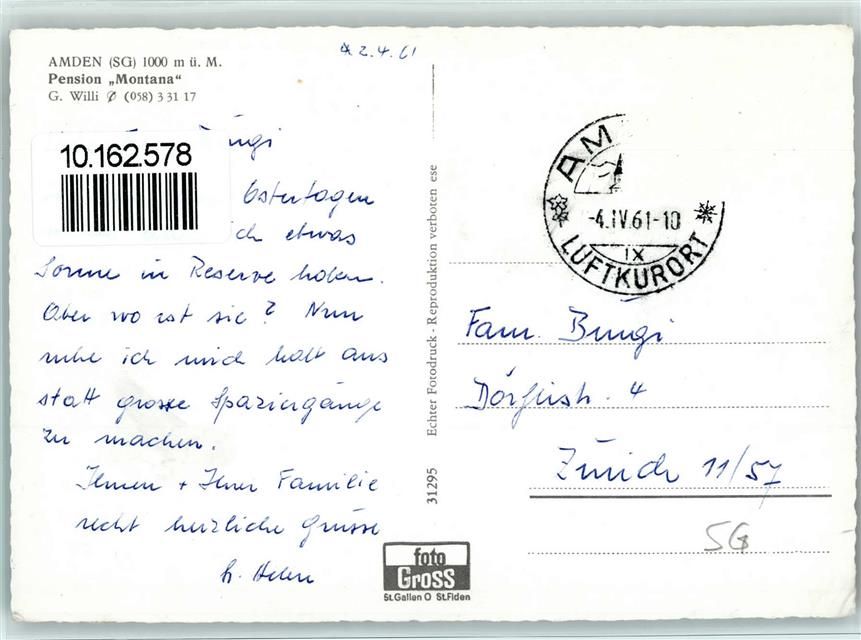 AMDEN (SG) 1000 m ü. M.
Pension „Montana“
G. Willi ✆ (058) 3 31 17
2.4.61
10.162.578
Ostertagen
ich etwas
Sonne in Reserve holen.
Aber wo ist sie? Nun
ruhe ich mich halt aus
statt grosse Spaziergänge
zu machen.
Ihnen + Ihrer Familie
recht herzliche Grüsse
Helen
31295 Echter Fotodruck - Reproduktion verboten ese
foto
Gross
St.Gallen O St.Fiden
AM
-4.IV.61-10
IX
LUFTKURORT
Fam. Büngi
Dörflistr. 4
Zürich 11/57
SG